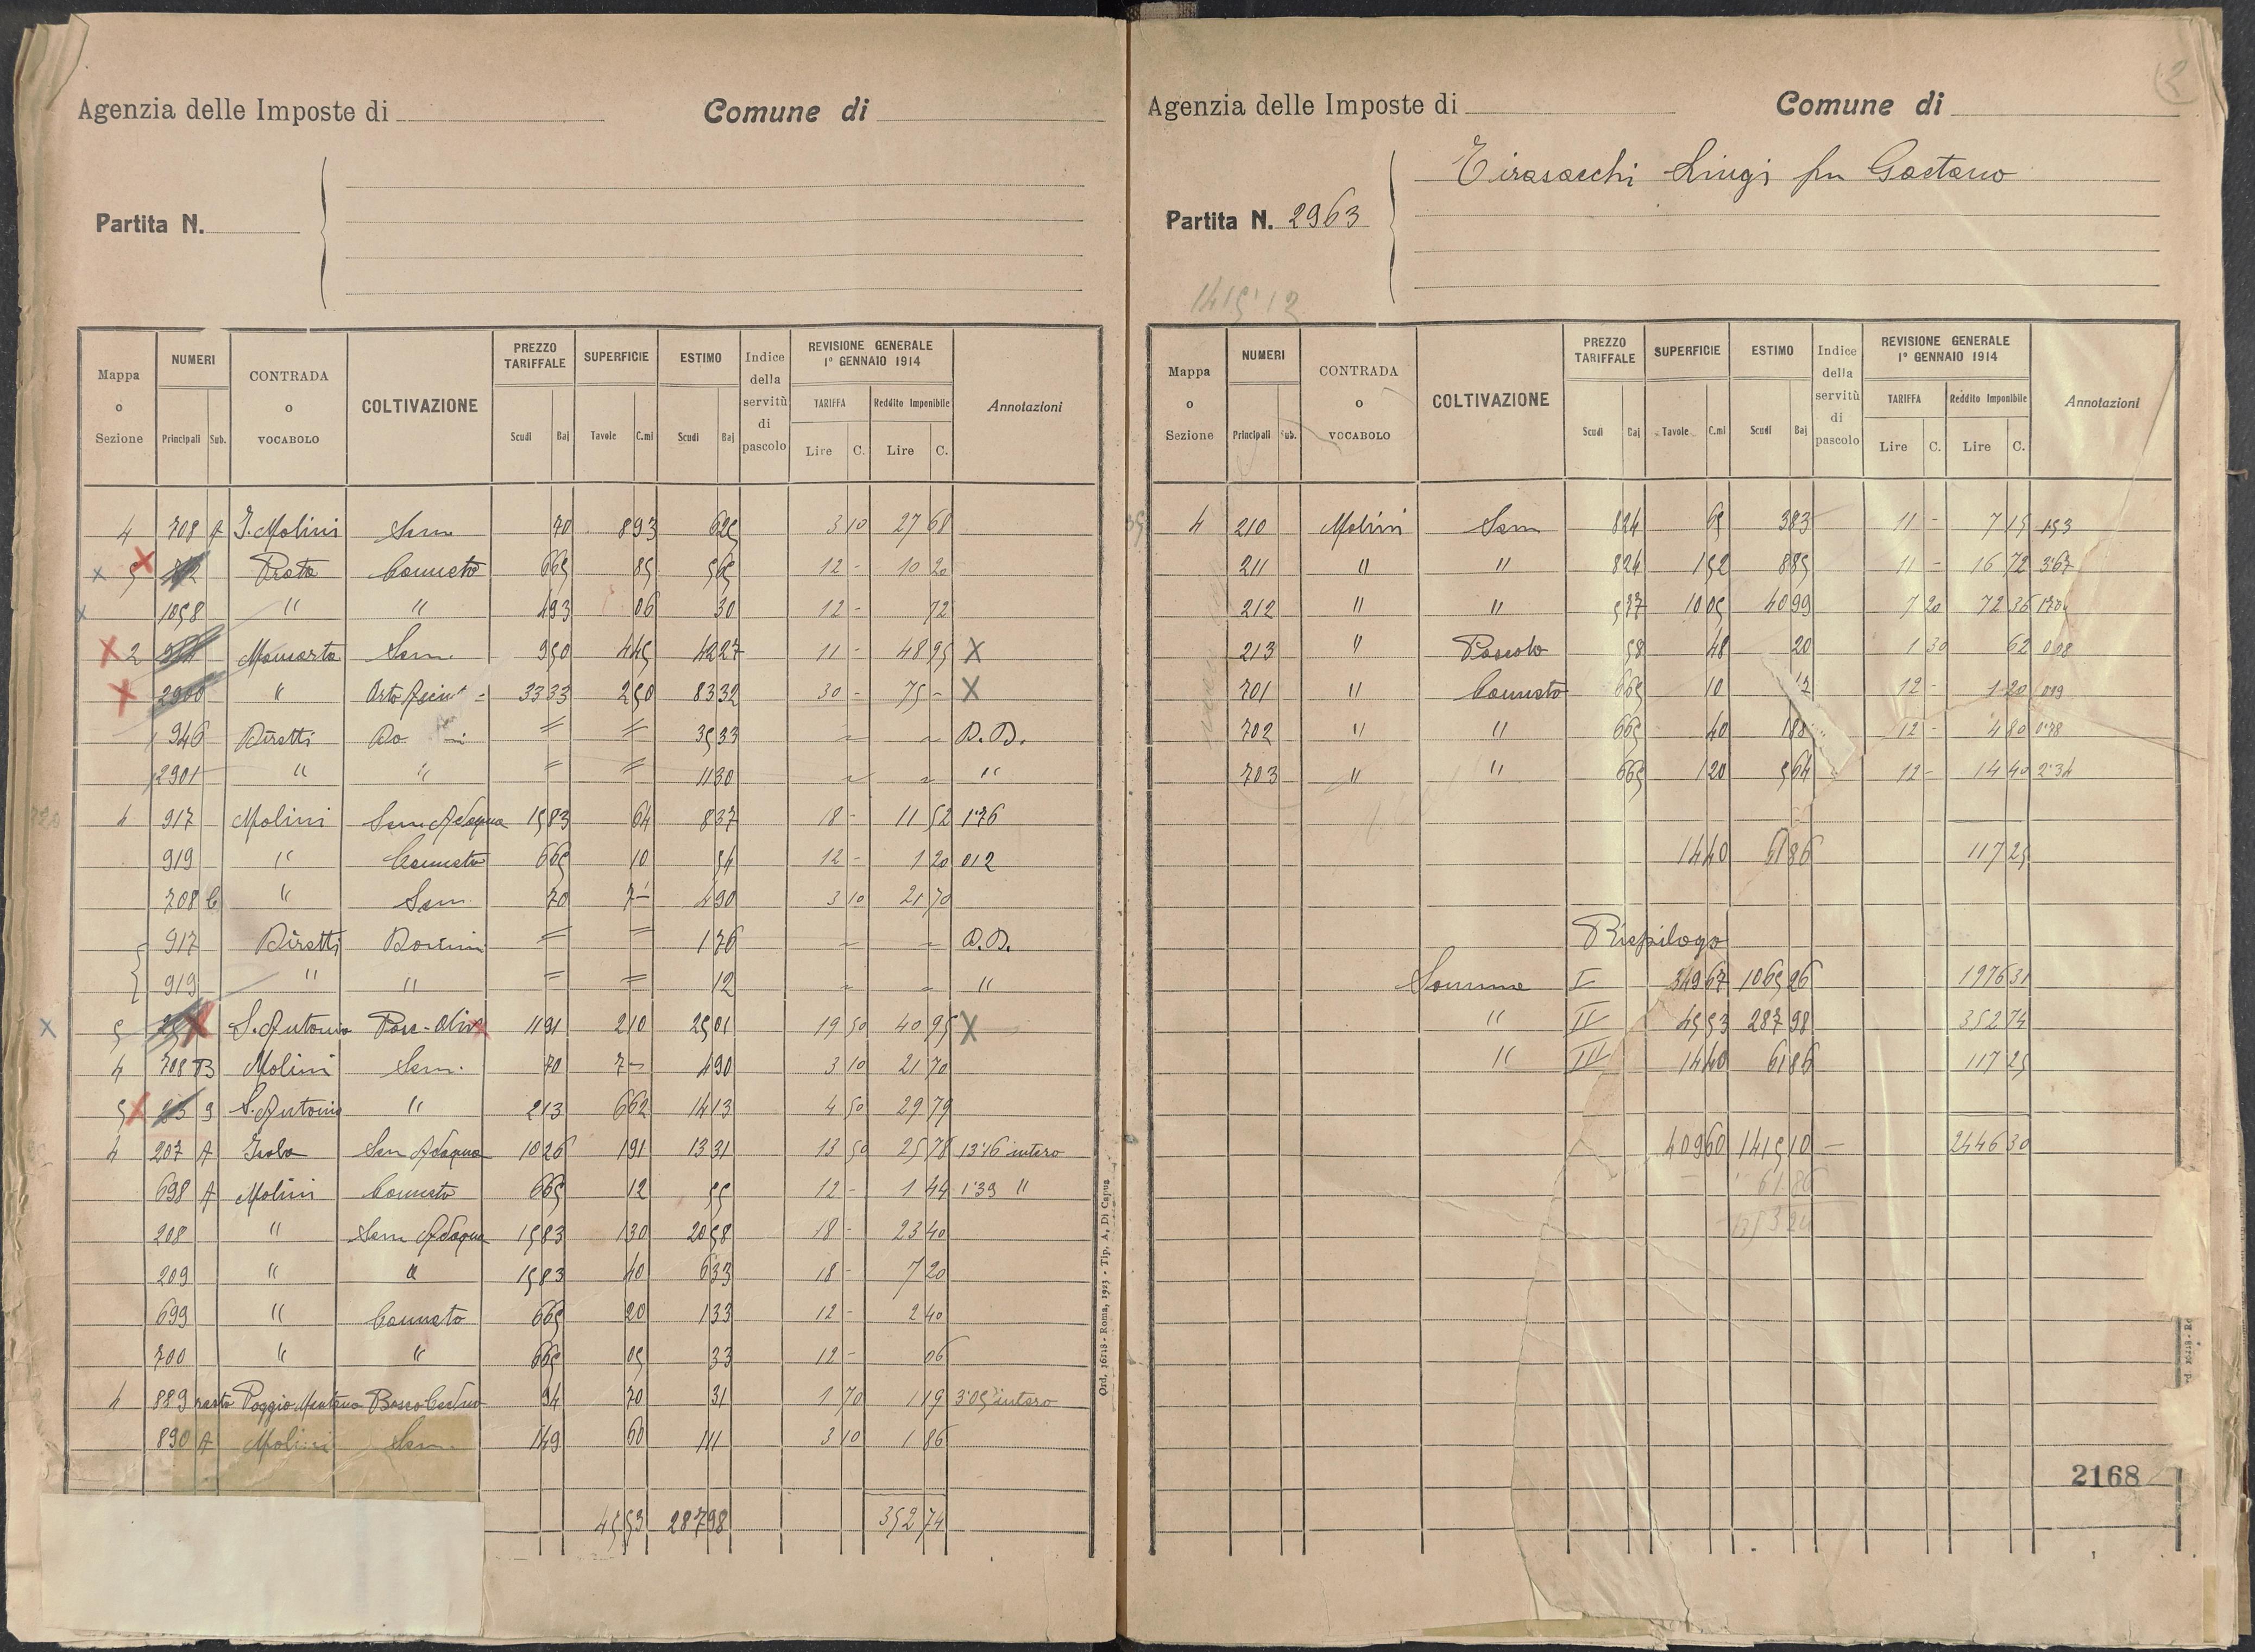 Agenzia delle Imposte di Comune di
Partita N.
Mappa o Sezione NUMERI Principali Sub. CONTRADA o VOCABOLO COLTIVAZIONE PREZZO TARIFFALE Scudi Baj SUPERFICIE Tavole C.mi ESTIMO Scudi Baj Indice della servitù di pascolo REVISIONE GENERALE 1° GENNAIO 1914 TARIFFA Lire C. Reddito Imponibile Lire C. Annotazioni
4 708 A I. Molini Sem 70 893 625 3 10 27 68
5 Prata Canneto 665 85 565 12 - 10 20
1058 " " 493 06 30 12 - 72
2 Sem. 950 445 4227 11 - 48 95 X
2900 " Orto 3333 250 8332 30 - 75 - X
946 Diretti Do = = 3533 D.D.
2901 " " = = 1130 "
4 917 Molini Sem Adaqua 1583 64 837 18 - 11 52 1'76
919 " Canneto 665 10 54 12 - 1 20 012
708 C " Sem. 70 7- 490 3 10 21 70
917 Diretti Domini = = 176 D.D.
919 " " = = 12 "
5 S. Antonio Pasc-Oliv 1191 210 2501 19 50 40 95 X
4 708 B Molini Sem. 70 7- 490 3 10 21 70
5 S. Antonio " 213 662 1413 4 50 29 79
4 207 A Isola Sem Adaqua 1026 191 1331 13 50 25 78 13'16 intero
698 A Molini Canneto 665 12 55 12 - 1 44 1'39 "
208 " Sem Adaqua 1583 130 2058 18 - 23 40
209 " " 1583 40 633 18 - 7 20
699 " Canneto 665 20 133 12 - 2 40
700 " " 665 05 33 12 - 06
4 889 resto Poggio Bosco Ceduo 94 70 31 1 70 1 19 3'05 intero
890 A Molini Sem. 149 60 111 3 10 1 86
4553 28798 352 74
Ord. 36118 - Roma, 1923 - Tip. A. Di Capua
2
Agenzia delle Imposte di Comune di
Tirasacchi Luigi fu Gaetano
Partita N. 2963
1415'12
Mappa o Sezione NUMERI Principali Sub. CONTRADA o VOCABOLO COLTIVAZIONE PREZZO TARIFFALE Scudi Baj SUPERFICIE Tavole C.mi ESTIMO Scudi Baj Indice della servitù di pascolo REVISIONE GENERALE 1° GENNAIO 1914 TARIFFA Lire C. Reddito Imponibile Lire C. Annotazioni
4 210 Molini Sem 824 65 383 11 - 7 15 153
211 " " 824 152 885 11 - 16 72 367
212 " " 577 1005 4099 7 20 72 36
213 " Pascolo 58 48 20 1 30 62 008
701 " Canneto 665 10 12 - 1 20 019
702 " " 665 40 188 12 - 4 80 0'78
703 " " 665 120 564 12 - 14 40 2'34
1440 6186 117 25
Riepilogo
Somma I 34967 106526 1976 31
" II 4553 28798 352 74
" III 1440 6186 117 25
40960 141510 - 2446 30
6186
135324
2168